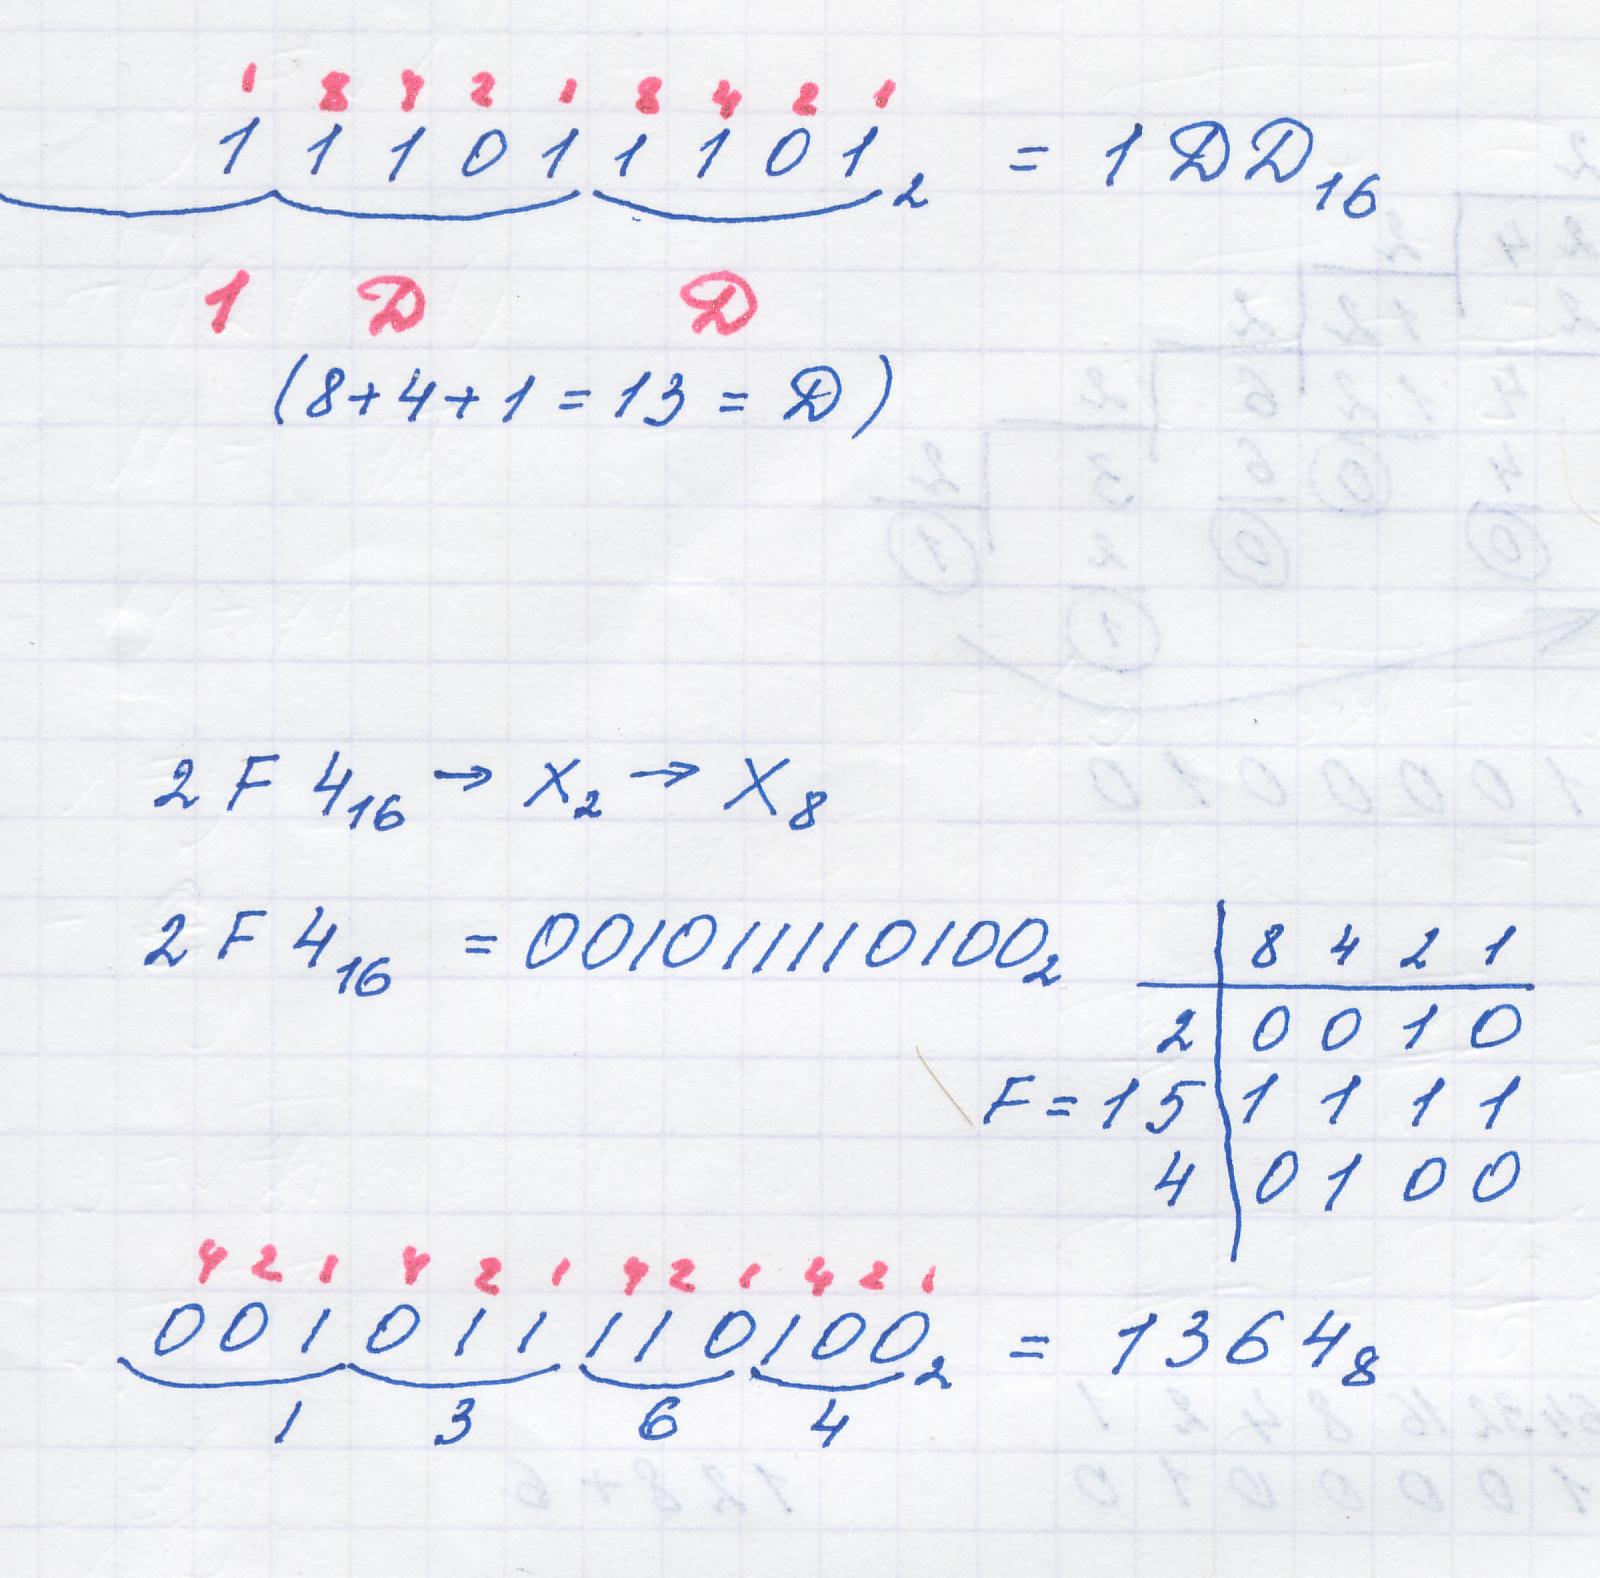 1 8 4 2 1 8 4 2 1
1 1 1 0 1 1 1 0 1₂ = 1DD₁₆
1 D D
(8+4+1=13=D)
2F4₁₆ → X₂ → X₈
2F4₁₆ = 001011110100₂
8 4 2 1
2 0 0 1 0
F=15 1 1 1 1
4 0 1 0 0
4 2 1 4 2 1 4 2 1 4 2 1
001011110100₂ = 1364₈
1 3 6 4